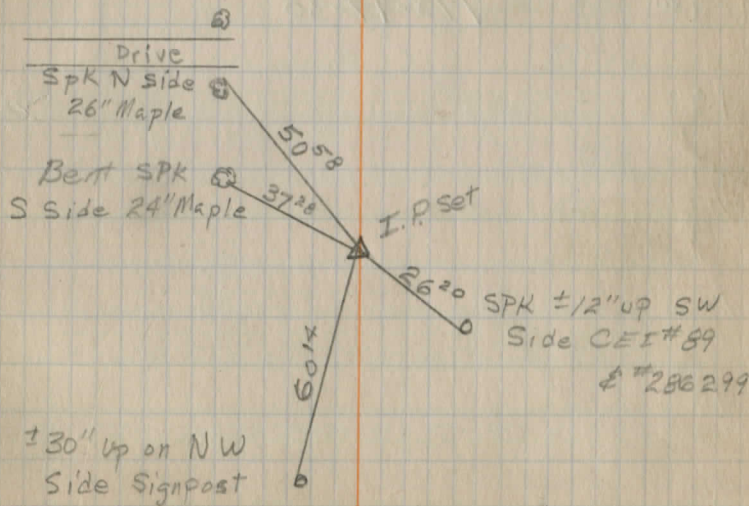 Drive
Spk N Side
26" Maple
50 58
Bent SPK
S Side 24" Maple
37 28
I.P. set
26 20
SPK ±12" up SW
Side CEI #89
& #286299
60 14
±30" up on NW
Side Signpost